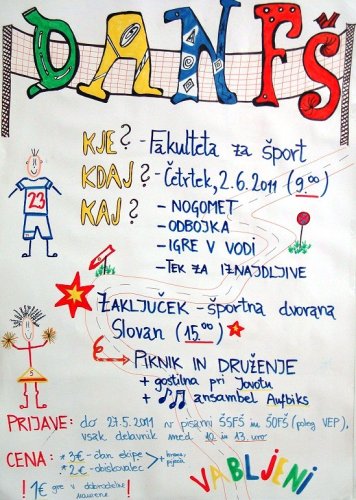 DAN FŠ
KJE? - Fakulteta za šport
KDAJ? - Četrtek, 2.6.2011 (9.00)
KAJ? - NOGOMET
- ODBOJKA
- IGRE V VODI
- TEK ZA IZNAJDLJIVE
23
ZAKLJUČEK - športna dvorana
Slovan (15.00)
PIKNIK IN DRUŽENJE
+ gostilna pri Jovotu
+ ansambel Aufbiks
S
PRIJAVE: do 27.5.2011 v pisarni ŠSFŠ in ŠOFŠ (poleg VEP),
vsak delavnik med 10. in 13. uro
CENA: * 3€ - član ekipe
* 2€ - obiskovalec
> + hrana, pijača
! 1€ gre v dobrodelne
namene!
VABLJENI